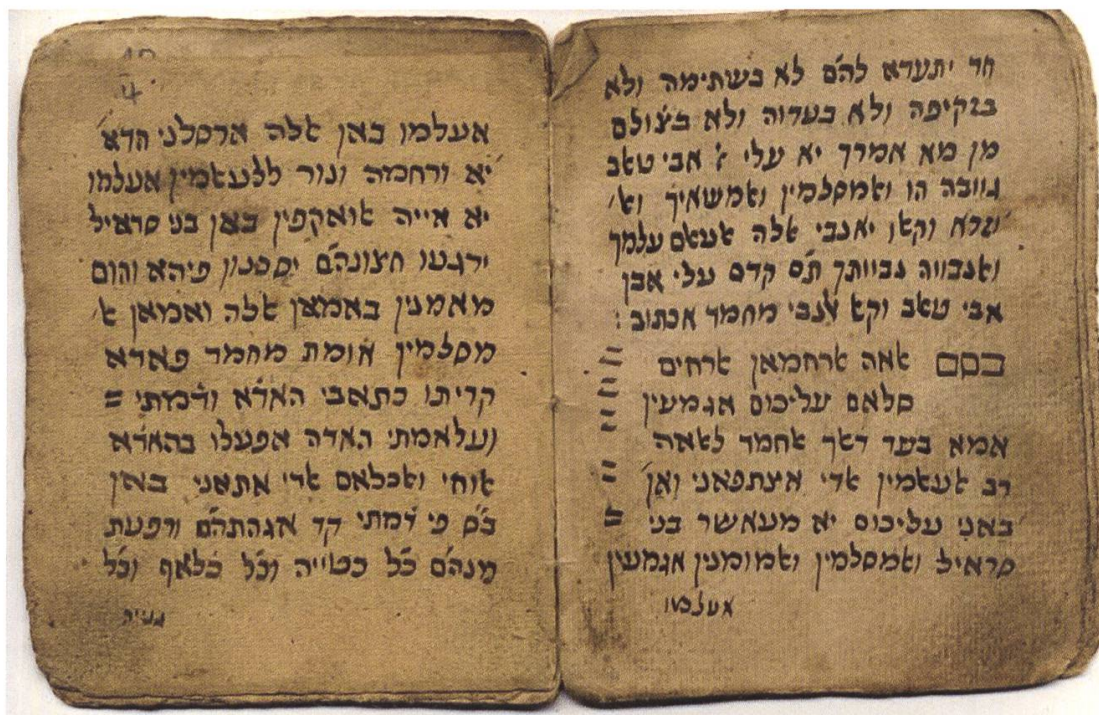 חד יתעדא להם לא בשתימה ולא
בזקיפה ולא בעדוה ולא בצולם
מן מא אמרך יא עלי ﭏ אבי טאב
גוובה הו ואמסלמין ואמשאיך וא׳
וקאו יאנבי ﭏה ﭏעאם עלמך
ואנבווה נבוותך תם קדם עלי אבן
אבי טאב וקא ﭏנבי מחמד אכתוב :
בסם ﭏאה ﭏרחמאן ﭏרחים
סלאם עליכום אגמעין
אמא בעד דאך ﭏחמד לﭏאה
רב ﭏעאמין ﭏדי איצתפאני ואן
באני עליכום יא מעאשר בני
סראיל ואמסלמין ואמומנין אגמעין
אעלמו
אעלמו באן ﭏלה ארסלני הדא
יא ורחמה ונור ללעאמין אעלמו
יא אייה ﭏואקפין באן בני סראיל
ירגעו חצונהם יסכנון פיהא והום
מאמנין באמאן ﭏלה ואמאן ﭏ
מסלמין אומת מחמד פאדא
קריתו כתאבי האדא ודמתי =
ועלאמתי האדה אפעלו בהאדא
ﭏוחי ואכלאם ﭏדי אתאני באן
כס פי דמתי קד אגהתהם ורפעת
מנהם כל כטייה וכל כלאף וכל